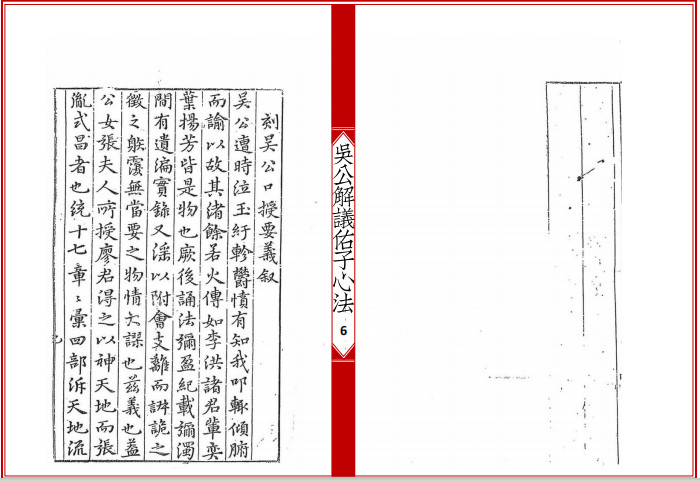 吳公解議佑子心法
6
刻吴公口授要義叙
吴公遭時泣玉紆軫欝憤有知我叩輙傾腑
而諭以故其渚餘若火傳如李洪諸君輩奕
葉揚芳皆是物也厥後誦法彌盈紀載彌濁
間有遺编實録又淫以附會支離而詭之
徵之無當要之物情大謬也兹義也葢
公女張夫人所授廖君得之以神天地而張
胤式昌者也统十七章〻彙四部泝天地流